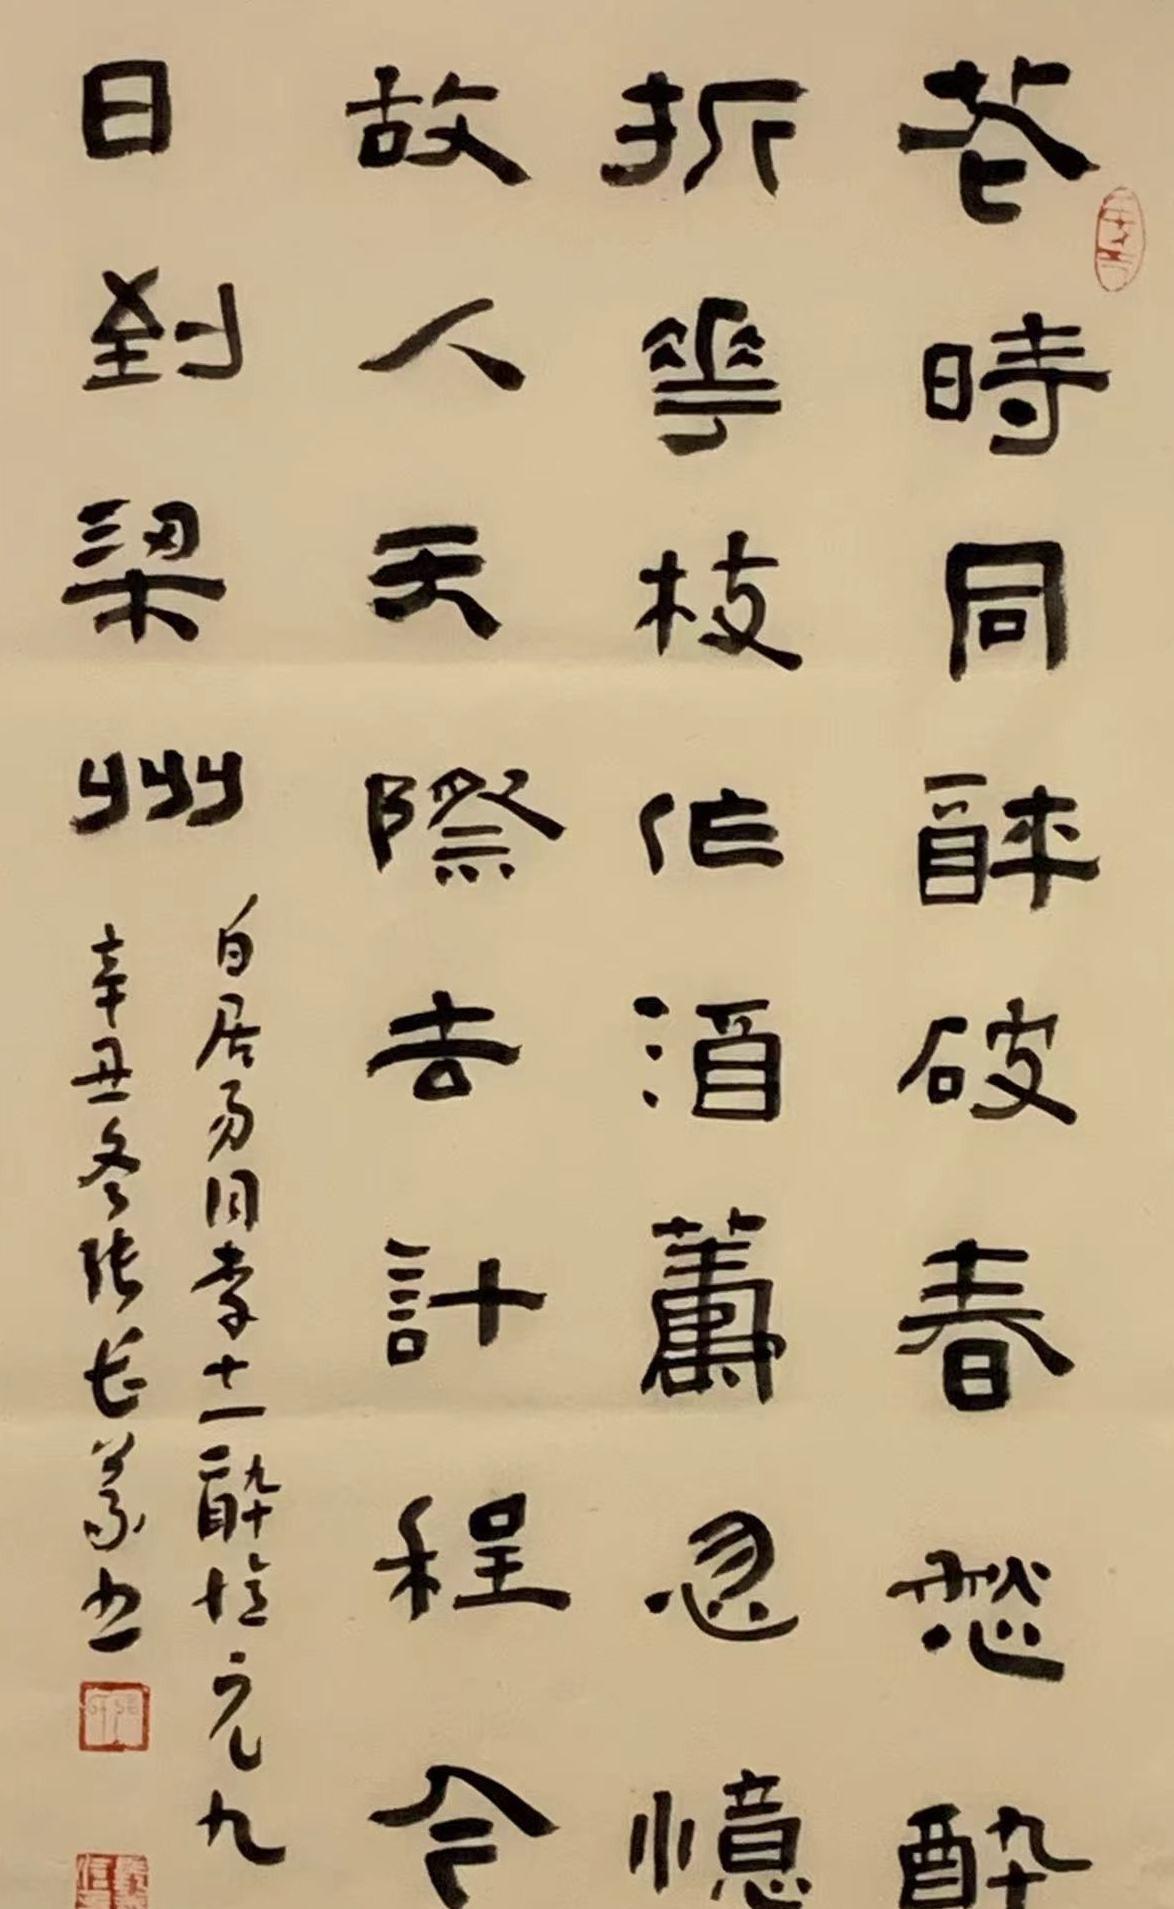 花時同醉破春愁醉
折花枝作酒籌忽憶
故人天際去計程今
日到梁州
白居易同李十一醉憶元九
辛丑冬张长义书